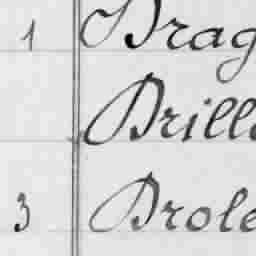 1 Drag
Drill
3 Drole